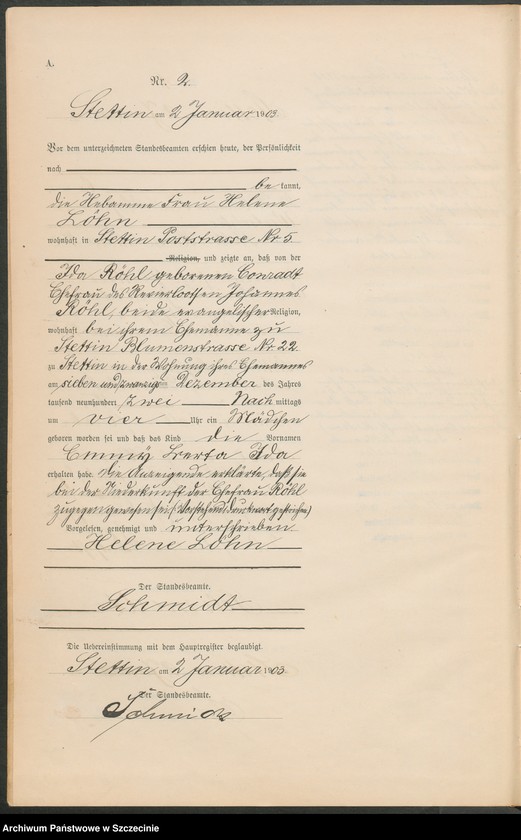 A.
Nr. 2.
Stettin am 2 Januar 1903.
Vor dem unterzeichneten Standesbeamten erschien heute, der Persönlichkeit
nach
be kannt,
die Hebamme Frau Helene
Löhn
wohnhaft in Stettin Poststrasse Nr 5
Religion, und zeigte an, daß von der
Ida Röhl geborenen Conradt
Ehefrau des Revierlootsen Johannes
Röhl, beide evangelischer Religion,
wohnhaft bei ihrem Ehemanne zu
Stettin Blumenstrasse Nr 22.
zu Stettin in der Wohnung ihres Ehemannes
am sieben und zwanzigsten Dezember des Jahres
tausend neunhundert zwei Nach mittags
um vier Uhr ein Mädchen
geboren worden sei und daß das Kind die Vornamen
Emmy Berta Ida
erhalten habe. Die Anzeigende erklärte, daß sie
bei der Niederkunft der Ehefrau Röhl
zugegen gewesen sei. (Vorstehend Druckwort gestrichen)
Vorgelesen, genehmigt und unterschrieben
Helene Löhn
Der Standesbeamte.
Schmidt
Die Uebereinstimmung mit dem Hauptregister beglaubigt.
Stettin am 2 Januar 1903.
Der Standesbeamte.
Schmidt
Archiwum Państwowe w Szczecinie